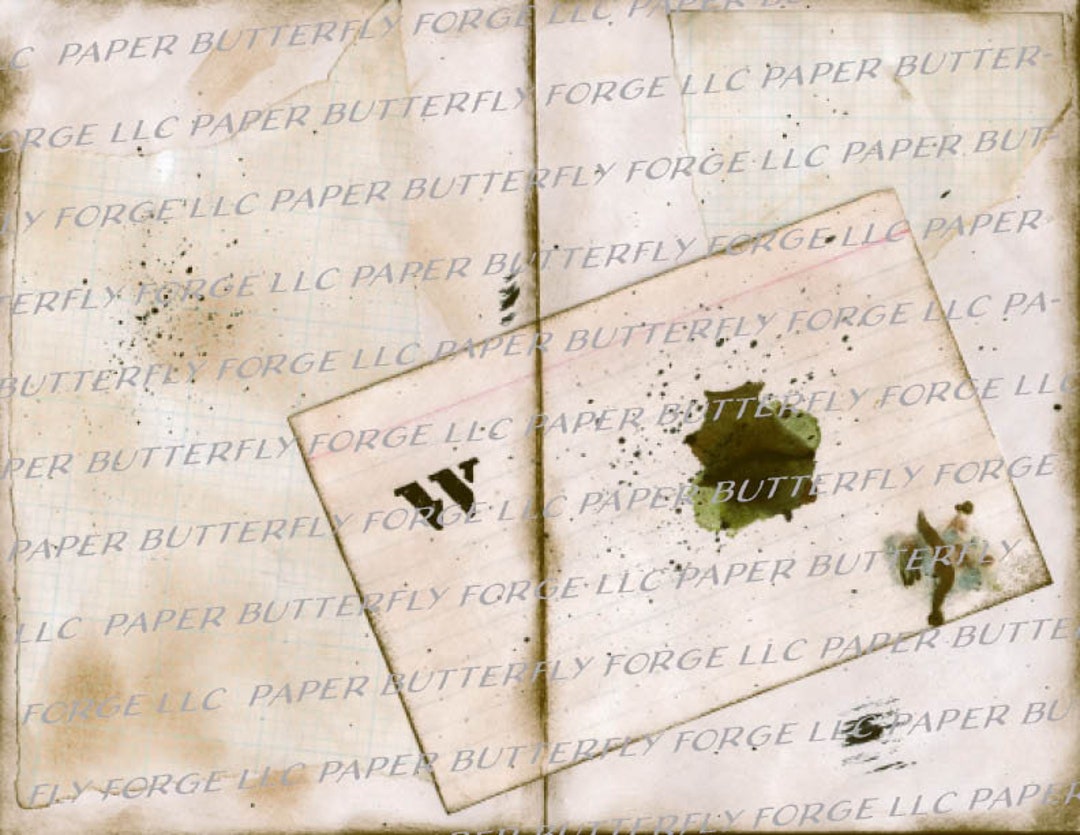 C PAPER BUTTERFLY FORGE LLC PAPER BU
ORGE LLC PAPER BUTTERFLY FORGE LLC PAPER BUTTER-
LY FORGE LLC PAPER BUTTERFLY FORGE LLC PAPER BUT-
TERFLY FORGE LLC PAPER BUTTERFLY FORGE LLC PAPER
BUTTERFLY FORGE LLC PAPER BUTTERFLY FORGE LLC PA-
PER BUTTERFLY FORGE LLC PAPER BUTTERFLY FORGE LLC
W
PAPER BUTTERFLY FORGE LLC PAPER BUTTERFLY FORGE
LLC PAPER BUTTERFLY FORGE LLC PAPER BUTTERFLY
FORGE LLC PAPER BUTTERFLY FORGE LLC PAPER BUTTE
FLY FORGE LLC PAPER BUTTERFLY FORGE LLC PAPER BU
PAPER BUTTERFLY FORGE LLC PAPER